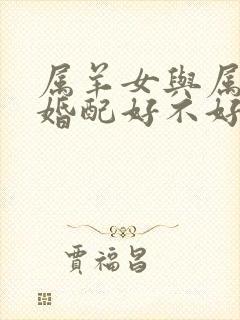 属羊女與属
婚配好不好
賈福昌